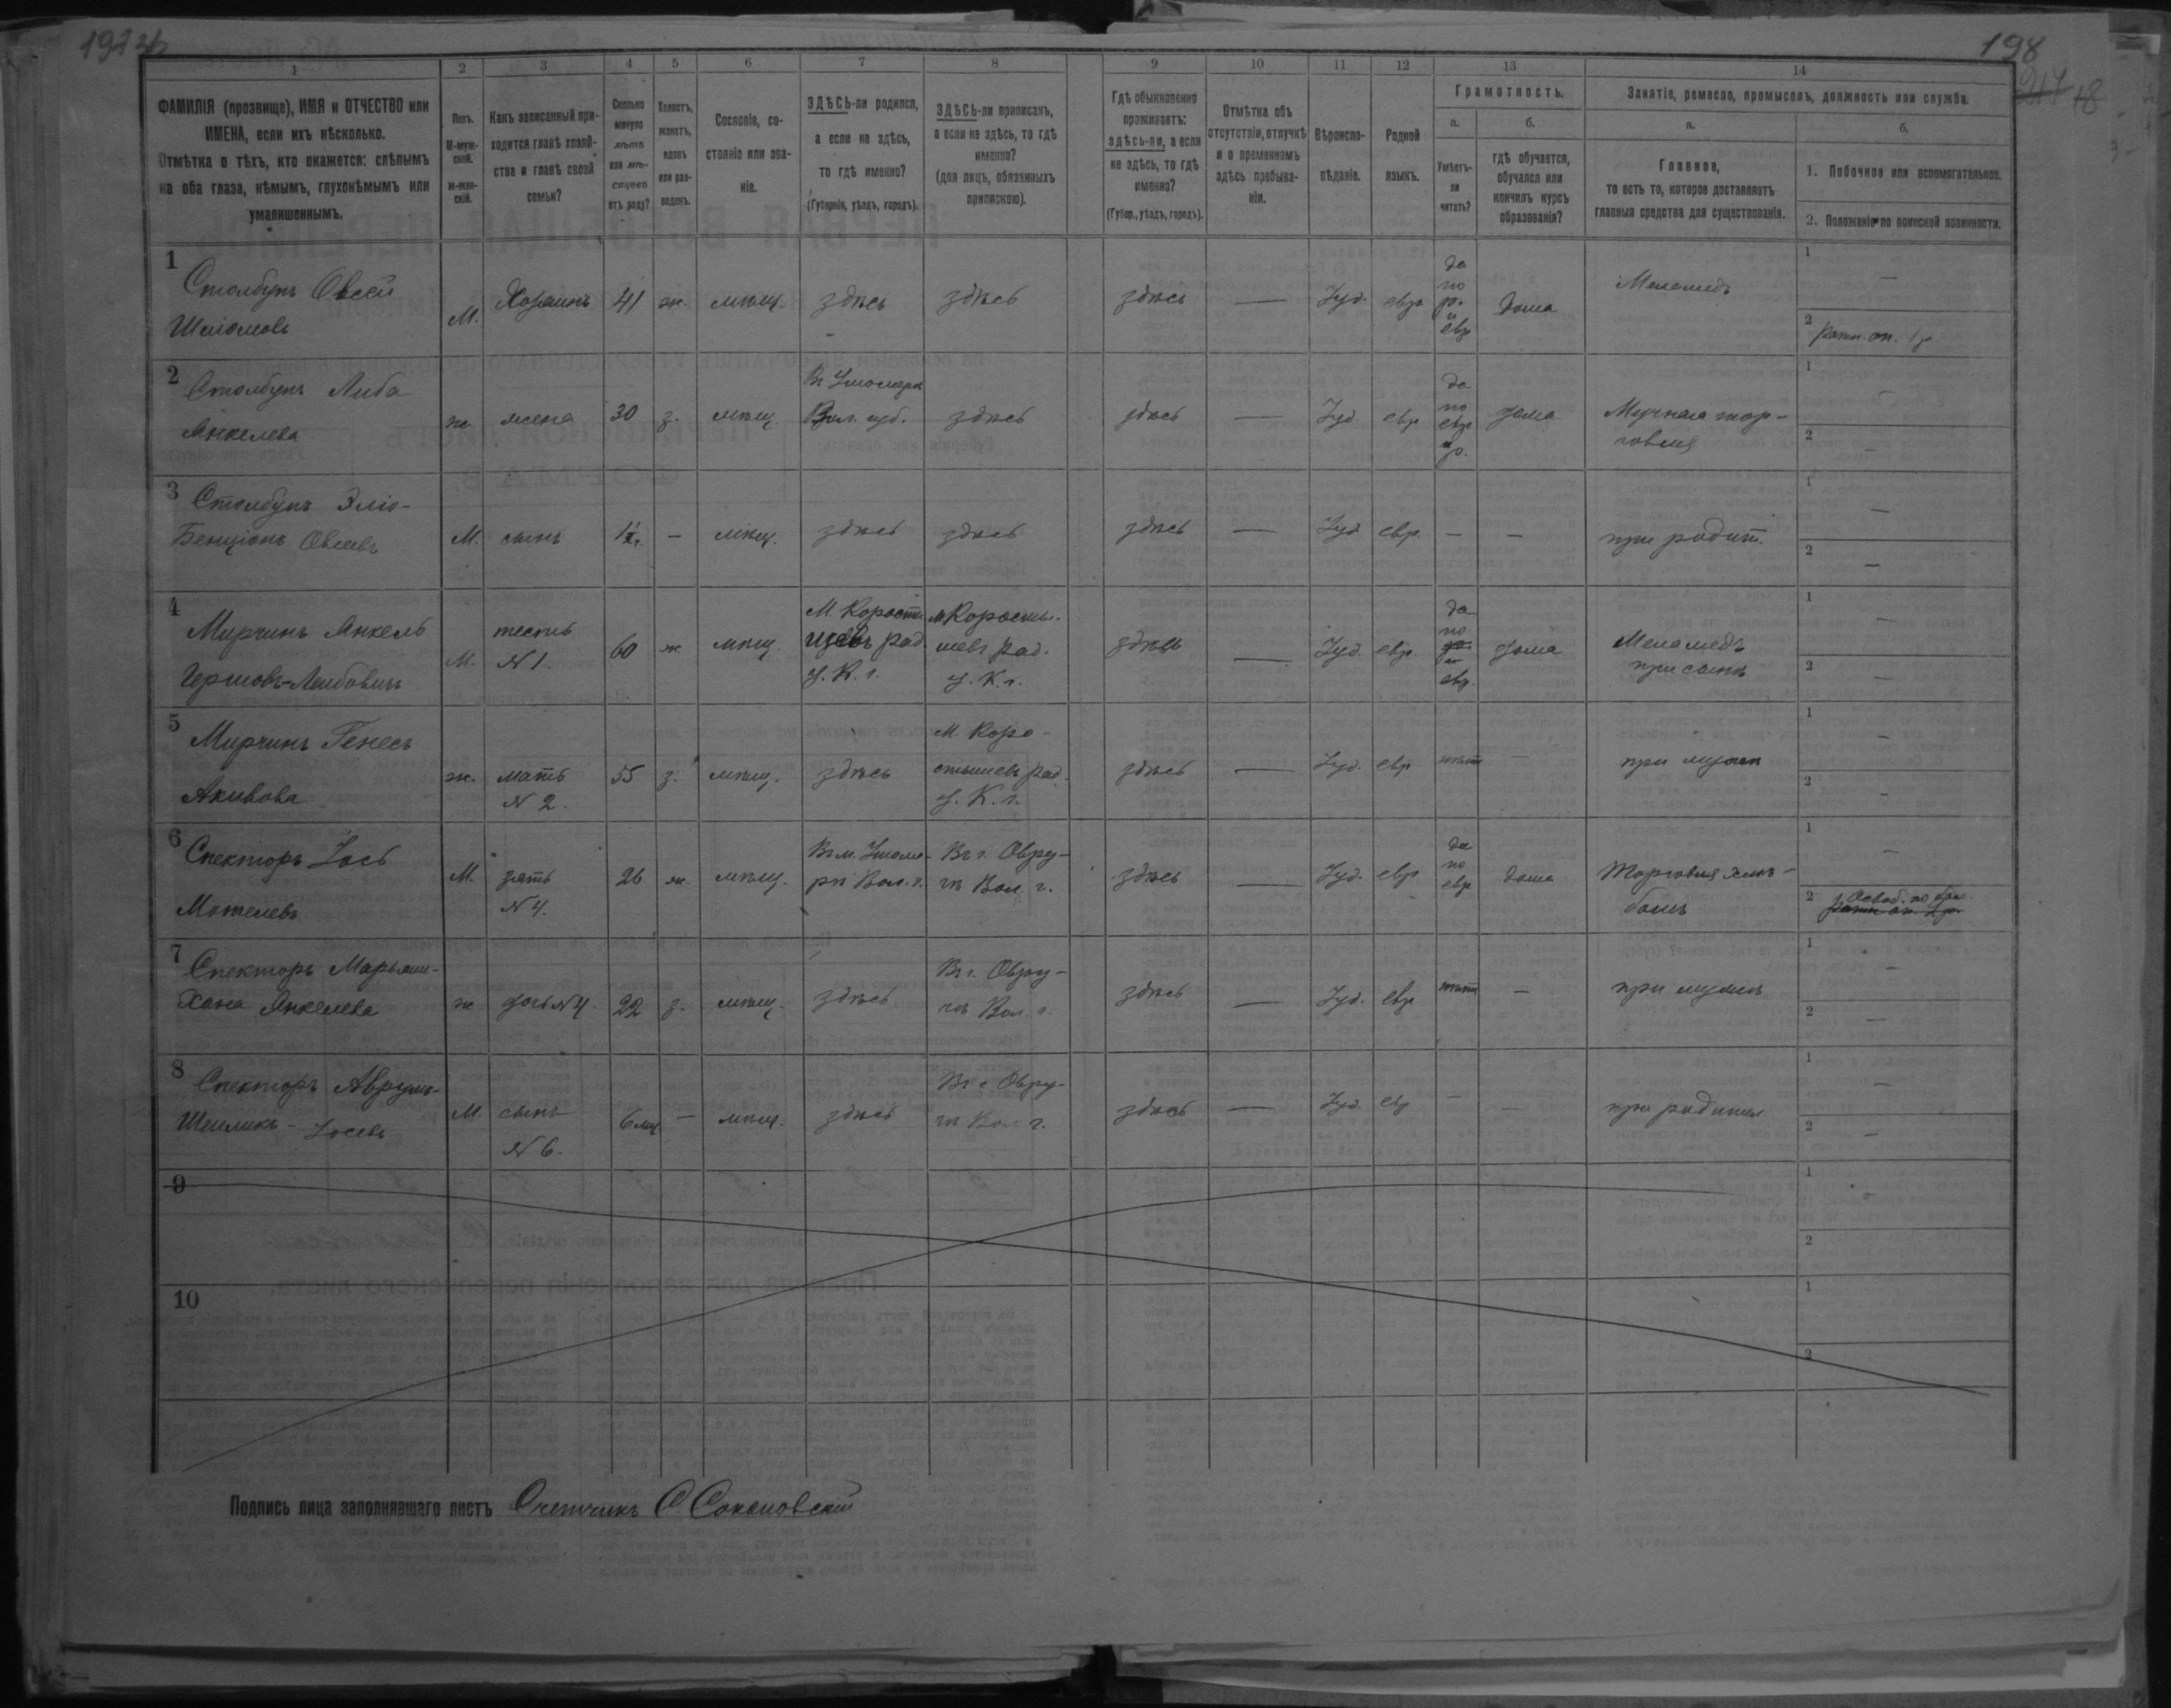 198
1 2 3 4 5 6 7 8 9 10 11 12 13 14
ФАМИЛІЯ (прозвище), ИМЯ и ОТЧЕСТВО или
ИМЕНА, если ихъ нѣсколько.
Отмѣтка о тѣхъ, кто окажется: слѣпымъ
на оба глаза, нѣмымъ, глухонѣмымъ или
умалишеннымъ.
Полъ.
М-муж-
ской.
Ж-жен-
скій.
Какъ записанный при-
ходится главѣ хозяй-
ства и главѣ своей
семьи?
Сколько
минуло
лѣтъ
или мѣ-
сяцевъ
отъ роду?
Холостъ,
женатъ,
вдовъ
или раз-
веденъ.
Сословіе, со-
стояніе или зва-
ніе.
ЗДѢСЬ-ли родился,
а если не здѣсь,
то гдѣ именно?
(Губернія, уѣздъ, городъ).
ЗДѢСЬ-ли приписанъ,
а если не здѣсь, то гдѣ
именно?
(для лицъ, обязанныхъ
припискою).
Гдѣ обыкновенно
проживаетъ:
здѣсь-ли, а если
не здѣсь, то гдѣ
именно?
(Губер., уѣздъ, городъ).
Отмѣтка объ
отсутствіи, отлучкѣ
и о временномъ
здѣсь пребыва-
ніи.
Вѣроиспо-
вѣданіе.
Родной
языкъ.
Грамотность.
а.
Умѣетъ-
ли
читать?
б.
гдѣ обучается,
обучался или
кончилъ курсъ
образованія?
Занятіе, ремесло, промыселъ, должность или служба.
а.
Главное,
то есть то, которое доставляетъ
главныя средства для существованія.
б.
1. Побочное или вспомогательное.
2. Положеніе по воинской повинности.
1
Столбунъ Овсей
Шліомовъ
М.
Хозяинъ
41
ж.
мѣщ.
здѣсь
здѣсь
здѣсь
—
Іуд.
евр.
да
по
р.
и
евр
дома
Меламедъ
1 —
2 Ратн. оп. 1 р.
2
Столбунъ Либа
Янкелева
ж
жена
30
з.
мѣщ.
Вол. губ.
здѣсь
здѣсь
—
Іуд.
евр
да
по
евр
и
р.
дома
Мучная тор-
говля
1 —
2
3
Столбунъ Эліо-
Бенціонъ Овсеевъ
М.
сынъ
—
мѣщ.
здѣсь
здѣсь
здѣсь
—
Іуд.
евр.
—
—
при родит.
1 —
2 —
4
Мирчинъ Янкель
Гершовъ-Лейбовичъ
М.
тесть
N 1.
60
ж
мѣщ.
М. Корости
шевъ Рад.
у. К. г.
м Корости.
шевъ Рад.
у. К. г.
здѣсь
—
Іуд.
евр.
да
по
р.
и
евр.
дома
Меламедъ
при сынѣ
1 —
2 —
5
Мирчинъ Генесъ
Акивова
ж.
мать
N 2.
55
з.
мѣщ.
здѣсь
М. Коро-
стышевъ Рад.
у. К. г.
здѣсь
—
Іуд.
евр
нѣтъ
—
при мужѣ
1 —
2 —
6
Спекторъ Іось
Мотелевъ
М.
зять
N 4.
26
ж.
мѣщ.
Въ м. Ушоми-
рѣ Вол. г.
Въ г. Овру-
чѣ Вол. г.
здѣсь
—
Іуд.
евр
да
по
евр
дома
Торговля хлѣ-
бомъ
1 —
2
7
Спекторъ Марьям-
Хана Янкелева
ж
дочь N 4.
22
з.
мѣщ.
здѣсь
Въ г. Овру-
чѣ Вол. г.
здѣсь
—
Іуд.
евр
нѣтъ
—
при мужѣ
1 —
2 —
8
Спекторъ Аврумъ-
Шмиликъ-Іосевъ
М.
сынъ
N 6.
6 мц
—
мѣщ.
здѣсь
Въ г. Овру-
чѣ Вол г.
здѣсь
—
Іуд.
евр
—
—
при родител.
1 —
2 —
9
1
2
10
1
2
Подпись лица заполнявшаго листъ Счетчикъ С. Соколовскій